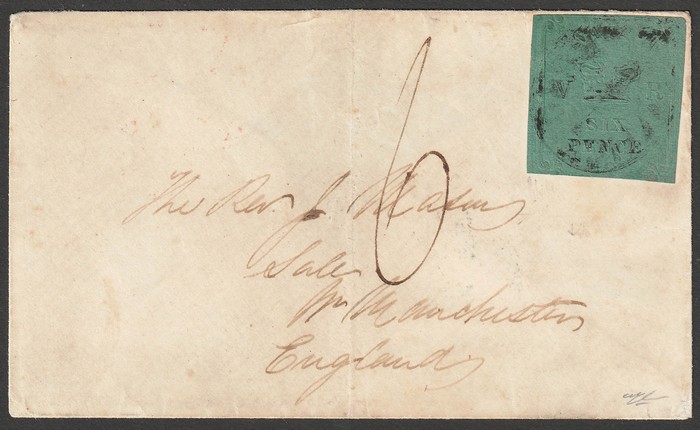 V R
SIX
PENCE
6
The Rev J. Mason
Sale
Nr Manchester
England